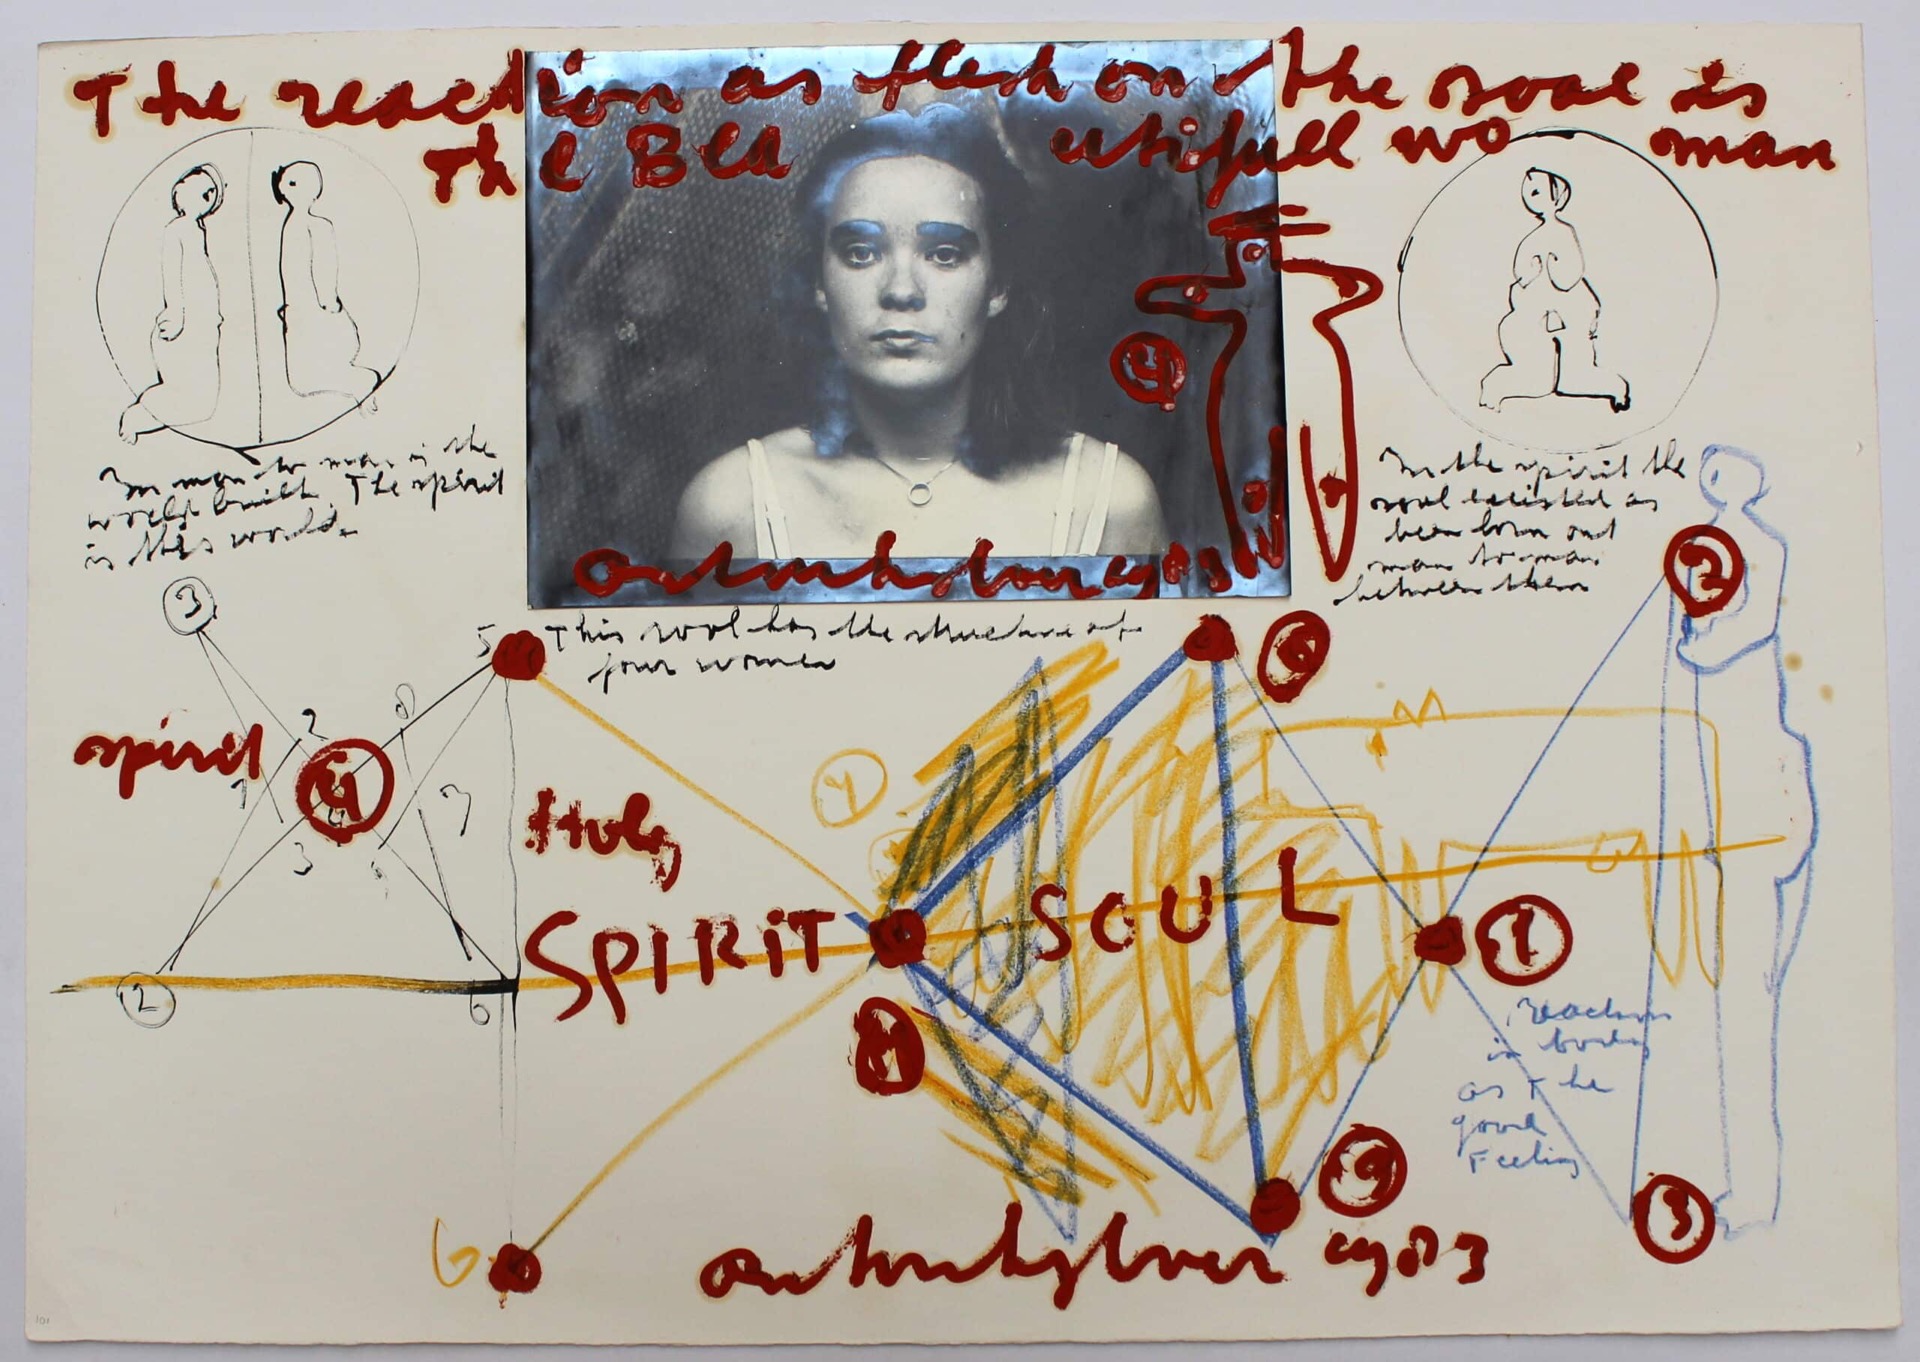 The reaction as flesh on the soal is
The Bea utifull wo man
In man to man is the
world built. The spirit
is this world.
In the spirit the
soul existed as
been born out
man to man
between them
This soul has the structure of
four women
3
5
2
8
spirit
4
1
7
3
Holy
SPIRiT
SOUL
2
6
1
2
3
4
reaction
in body
as the
good
Feeling
6
1983
101